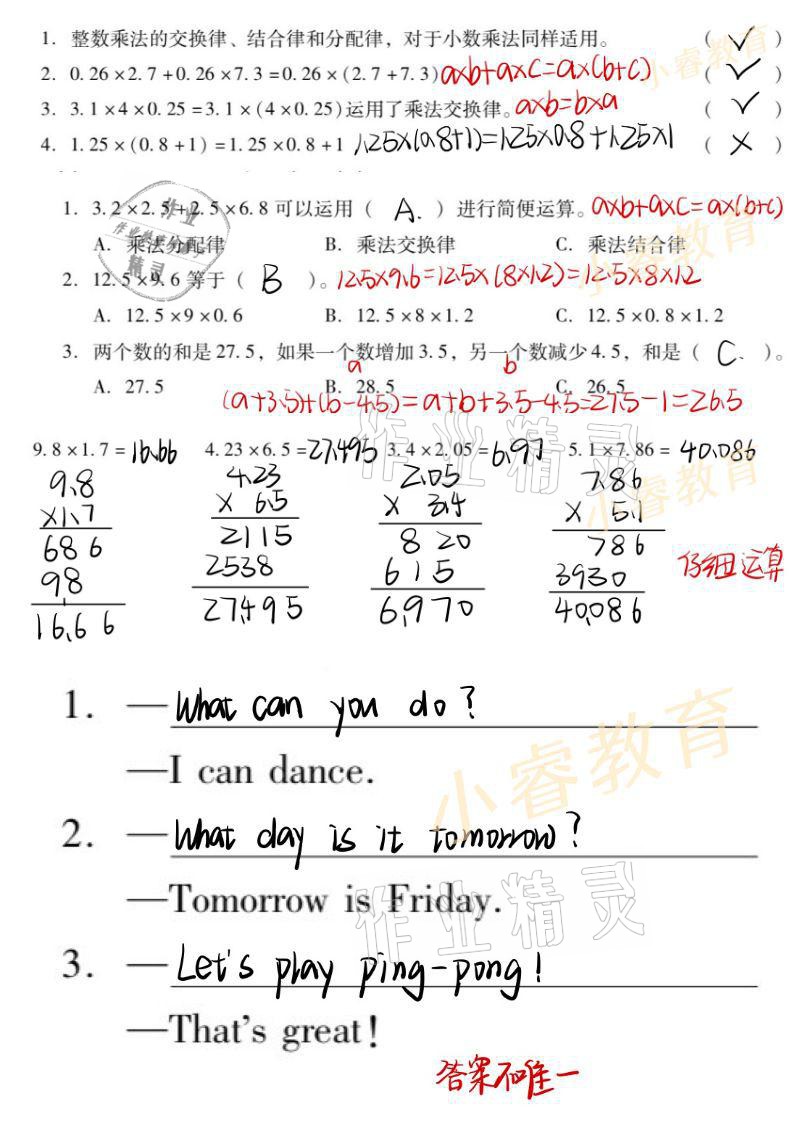 1. 整数乘法的交换律、结合律和分配律，对于小数乘法同样适用。 ( ✓ )
2. 0.26×2.7+0.26×7.3=0.26×(2.7+7.3) a×b+a×c=a×(b+c) ( ✓ )
3. 3.1×4×0.25=3.1×(4×0.25)运用了乘法交换律。 a×b=b×a ( ✓ )
4. 1.25×(0.8+1)=1.25×0.8+1 1.25×(0.8+1)=1.25×0.8+1.25×1 ( × )
1. 3.2×2.5+2.5×6.8可以运用( A. )进行简便运算。 a×b+a×c=a×(b+c)
A. 乘法分配律 B. 乘法交换律 C. 乘法结合律
2. 12.5×9.6等于( B )。 12.5×9.6=12.5×(8×1.2)=12.5×8×1.2
A. 12.5×9×0.6 B. 12.5×8×1.2 C. 12.5×0.8×1.2
3. 两个数的和是27.5，如果一个数增加3.5，另一个数减少4.5，和是( C. )。
a b
A. 27.5 B. 28.5 C. 26.5
(a+3.5)+(b-4.5)=a+b+3.5-4.5=27.5-1=26.5
9.8×1.7=16.66 4.23×6.5=27.495 3.4×2.05=6.97 5.1×7.86=40.086
9.8 4.23 2.05 7.86
×1.7 × 6.5 × 3.4 × 5.1
686 2115 820 786
98 2538 615 3930
16.66 27.495 6.970 40.086
仔细运算
1. —What can you do?
—I can dance.
2. —What day is it tomorrow?
—Tomorrow is Friday.
3. —Let's play ping-pong!
—That's great!
答案不唯一
小睿教育
小睿教育
小睿教育
小睿教育
作业精灵
作业精灵
作业精灵